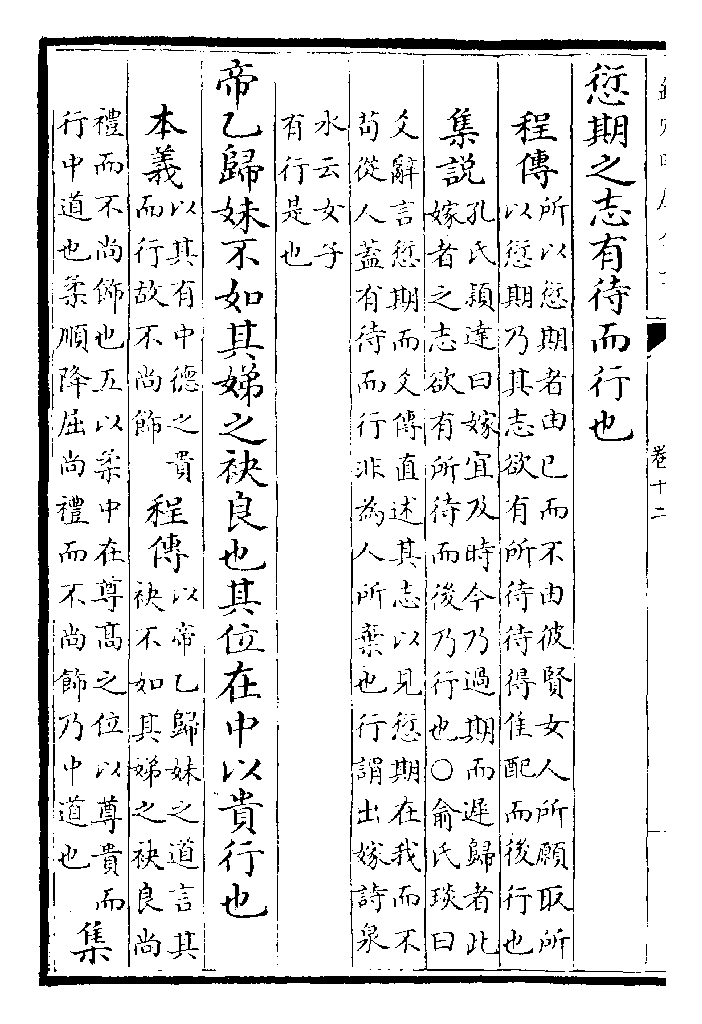 卷十二
愆期之志有待而行也
程傳
所以愆期者由已而不由彼賢女人所願取所
以愆期乃其志欲有所待待得佳配而後行也
集説
孔氏穎達曰嫁宜及時今乃過期而遲歸者此
嫁者之志欲有所待而後乃行也○俞氏琰曰
爻辭言愆期而爻傳直述其志以見愆期在我而不
苟從人蓋有待而行非為人所棄也行謂出嫁詩泉
水云女子
有行是也
帝乙歸妹不如其娣之袂良也其位在中以貴行也
本義
以其有中德之貴
而行故不尚飾
程傳
以帝乙歸妹之道言其
袂不如其娣之袂良尚
禮而不尚飾也五以柔中在尊髙之位以尊貴而
行中道也柔順降屈尚禮而不尚飾乃中道也
集